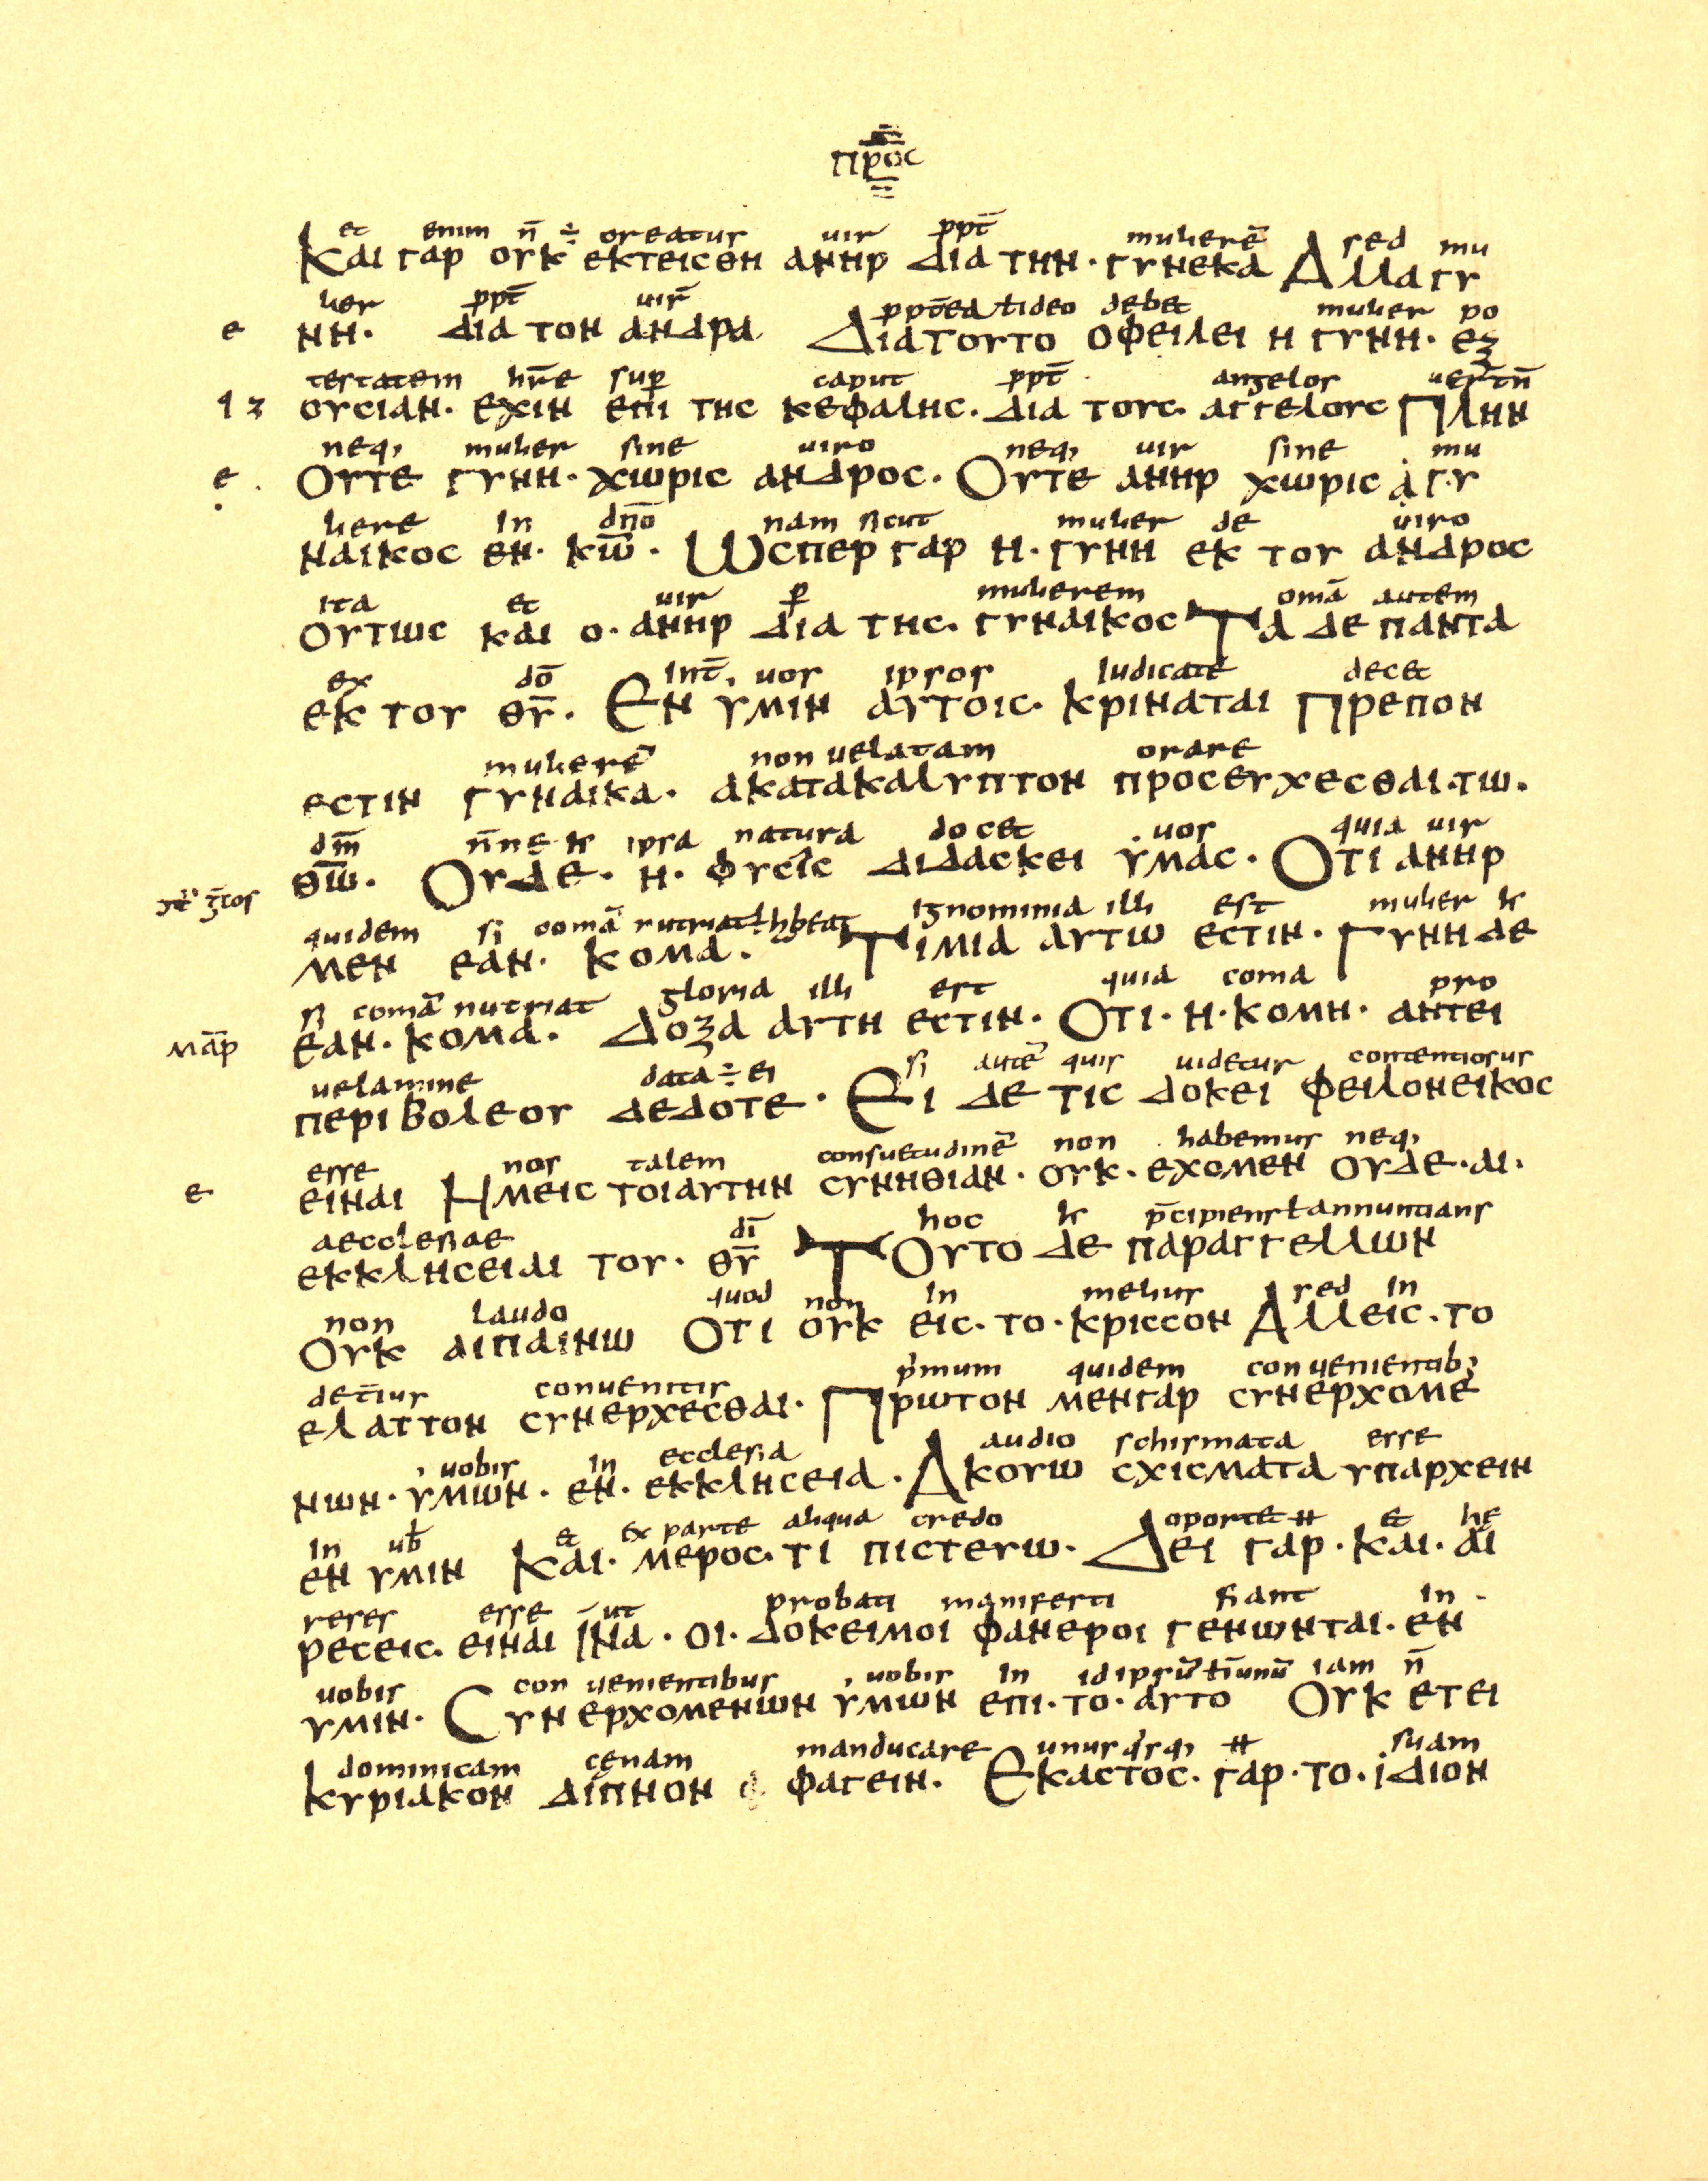 προс
et enim n̄ ÷ creatur uir ppt̄ mulierē sed mu
Και γαρ ουκ εκτεισθη ανηρ δια την· γυνεκα Αλλα γυ
lier ppt̄ uir̄ ppt̄ea ł ideo debet mulier po
νη· δια τον ανδρα Δια τουτο οφειλει η γυνη· εξ
testatem hr̄e sup caput ppt̄ angelos uer̄tn̄
ουσιαν· εχιν επι της κεφαλης· δια τους· αγγελους Πλην
neq, mulier sine uiro neq, uir sine mu
Ουτε γυνη· χωρις ανδρος· Ουτε ανηρ χωρις α γ·υ
liere in dn̄o nam sicut mulier de uiro
ναικος εν· κω̄· Ωσπερ γαρ η· γυνη εκ του ανδρος
ita et uir p mulierem omā autem
ουτως και ο· ανηρ δια της· γυναικος Τα δε παντα
ex dō int̄, uos ipsos iudicate decet
εκ του θῡ· Εν υμιν αυτοις· κριναται Πρεπον
mulierē non uelatam orare
εστιν γυναικα· ακατακαλυπτον προσευχεσθαι·τω·
dm̄ n̄ne ipsa natura docet uos quia uir
θω̄· Ουδε· η· φυσις διδασκει υμας· Οτι ανηρ
quidem si comā nutriat ł hbeat ignominia illi est mulier
μεν εαν· κομα· Τιμια αυτω εστιν· Γυνη δε
si comā nutriat gloria illi est quia coma pro
εαν· κομα· Δοξα αυτη εστιν· Οτι· η· κομη· αντει
uelamine data ÷ ei si autē quis uidetur contentiosus
περιβολεου δεδοτε· Ει δε τις δοκει φειλονεικος
esse nos talem consuetudinē non habemus neq,
ειναι Ημεις τοιαυτην συνηθιαν· ουκ· εχομεν ουδε·αι·
aecclesiae dī hoc p̄cipiens ł annuntians
εκκλησειαι του· θῡ Τουτο δε παραγγελλων
non laudo quod non in melius sed in
Ουκ αιπαινω Οτι ουκ εις· το· κρισσον Αλλεις·το
det̄ius conuenitis p̄mum quidem conuenientib;
ελαττον συνερχεσθαι· Πρωτον μενγαρ συνερχομε
uobis in ecclesia audio schismata esse
νων· υμων· εν· εκκλησεια· Ακουω σχισματα υπαρχειν
in ub̄ et ex parte aliqua credo oportet et hę
εν υμιν Και· μερος· τι πιστευω· Δει γαρ· και· αι
reses esse ut probati manifesti fiant in
ρεσεις· ειναι Ινα· οι· δοκειμοι φανεροι γενωνται· εν
uobis conuenientibus uobis in idipsū ł ī unū iam n̄
υμιν· Συνερχομενων υμων επι·το· αυτο Ουκ ετει
dominicam cęnam manducare unusq̄sq, suam
κυριακον διπνον φαγειν· Εκαστος· γαρ·το· ιδιον